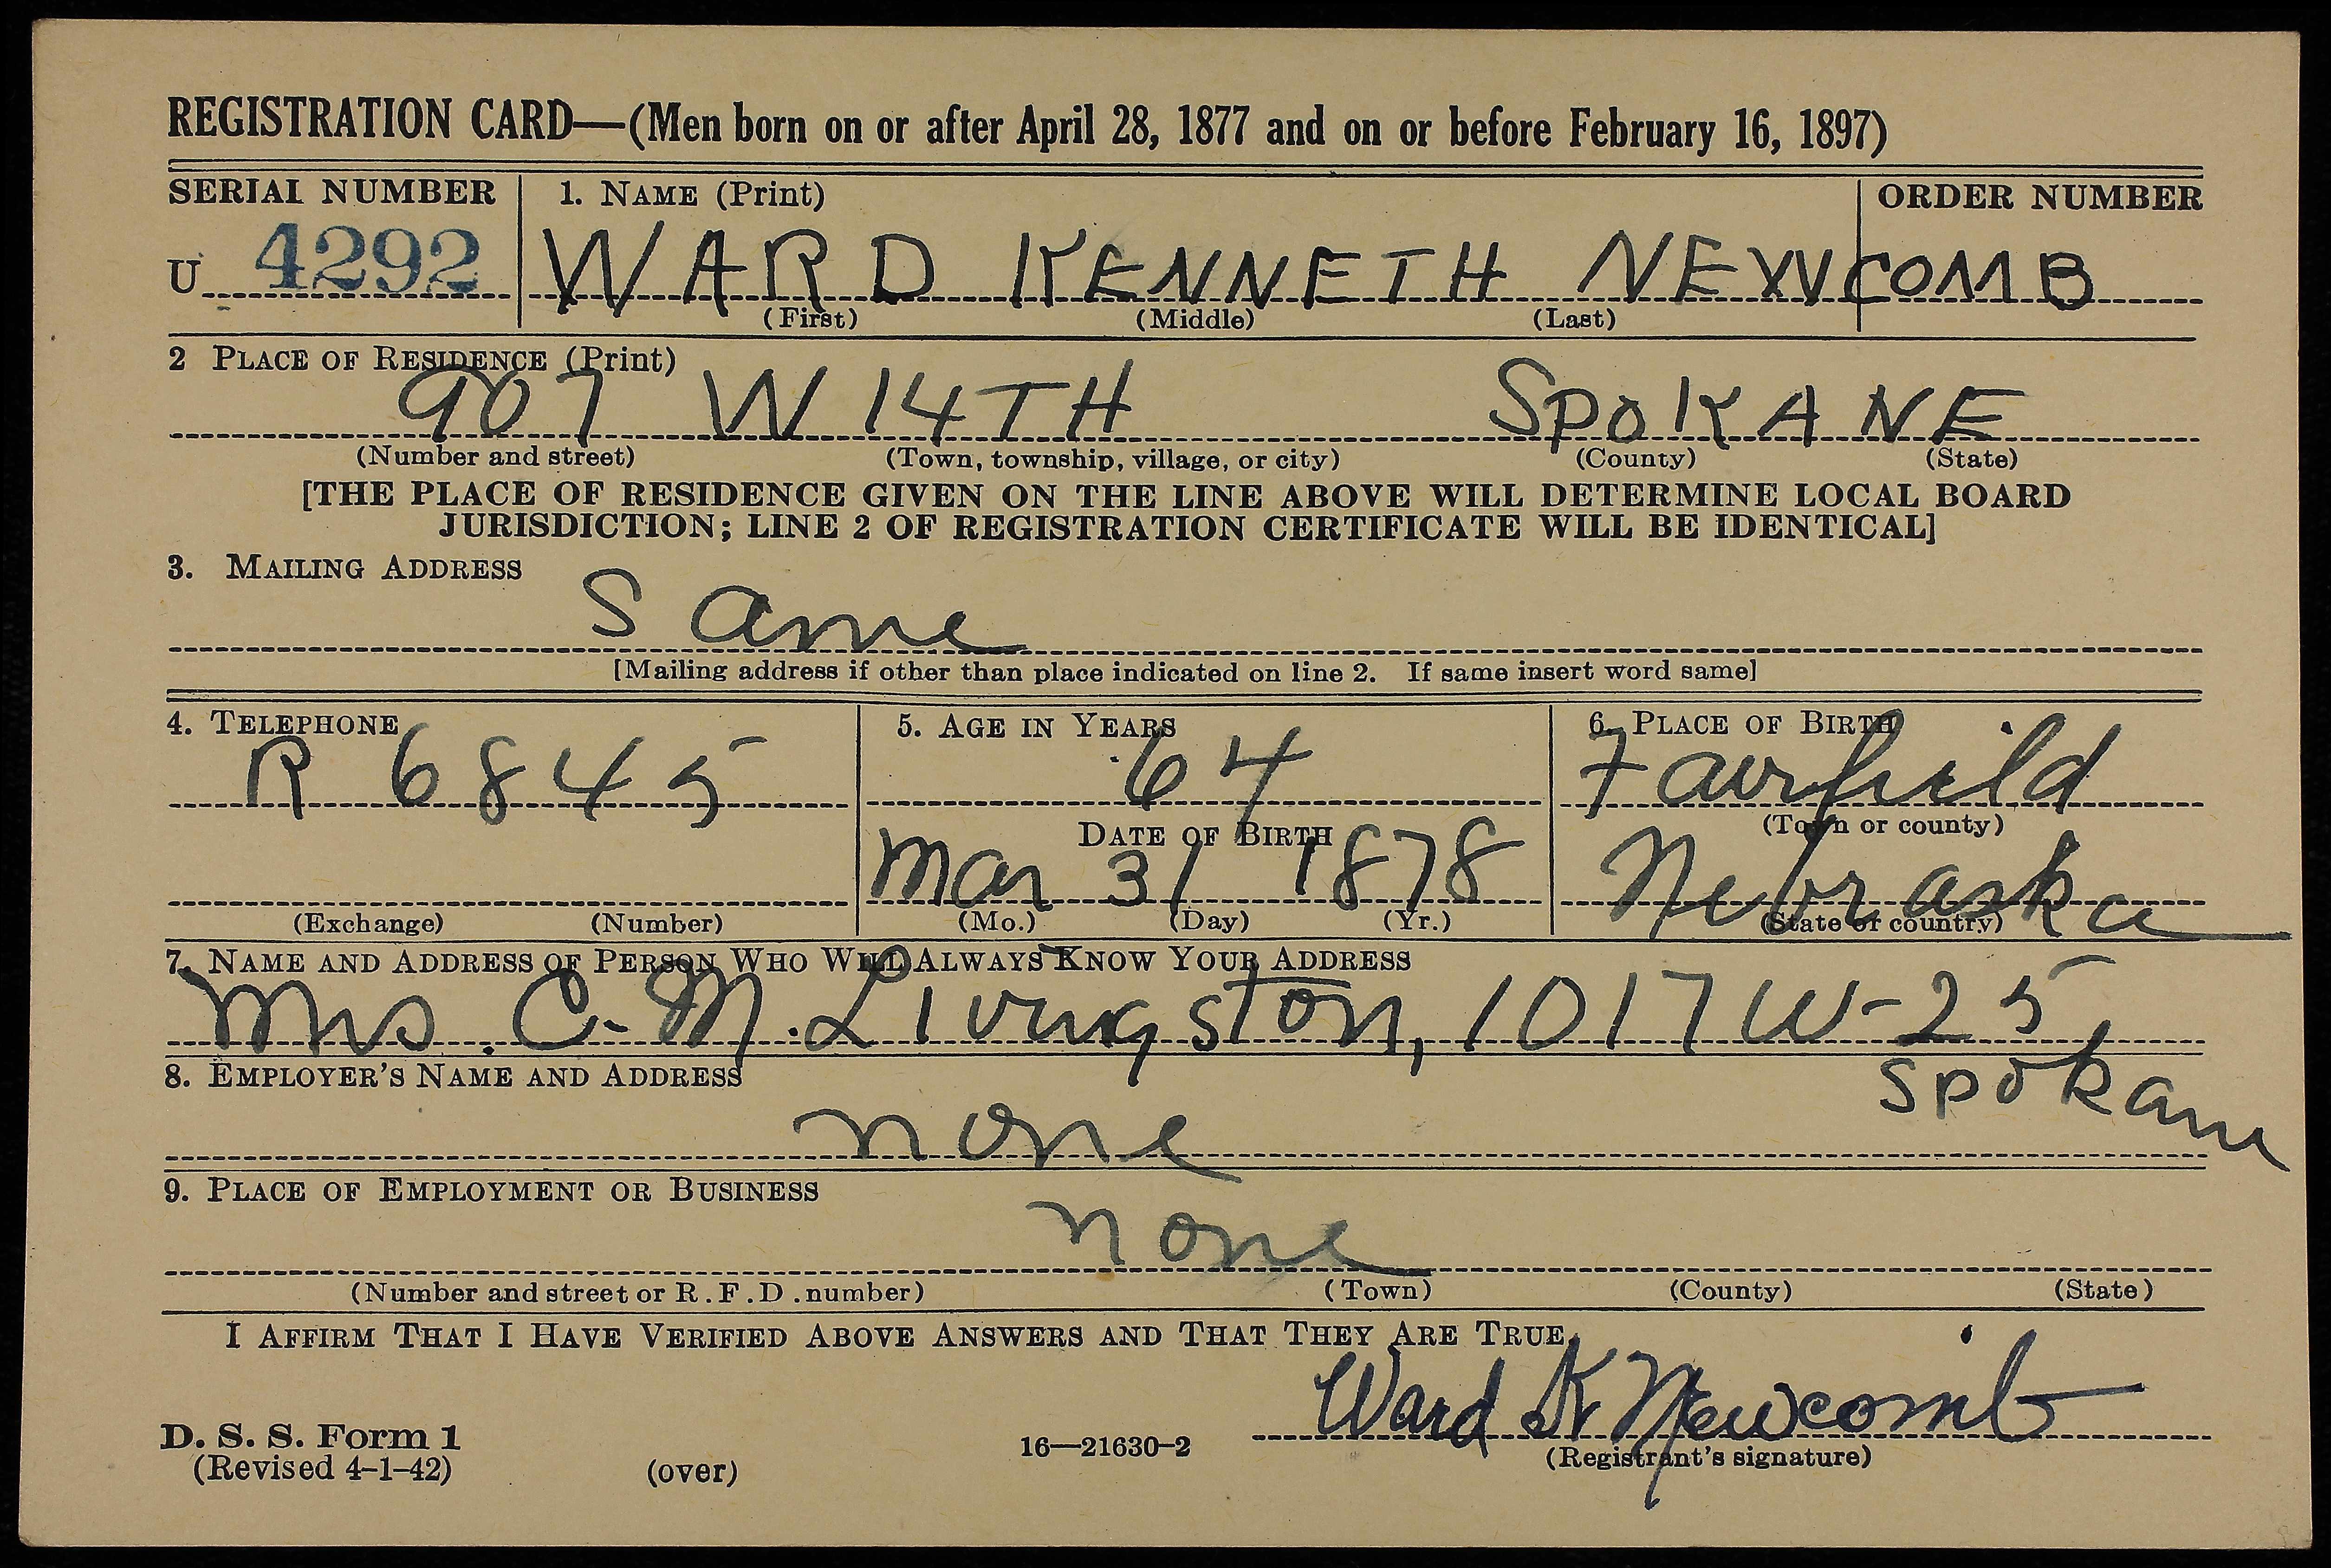 REGISTRATION CARD—(Men born on or after April 28, 1877 and on or before February 16, 1897)
SERIAL NUMBER 1. NAME (Print) ORDER NUMBER
U 4292 WARD KENNETH NEWCOMB
(First) (Middle) (Last)
2 PLACE OF RESIDENCE (Print)
907 W 14TH SPOKANE
(Number and street) (Town, township, village, or city) (County) (State)
[THE PLACE OF RESIDENCE GIVEN ON THE LINE ABOVE WILL DETERMINE LOCAL BOARD
JURISDICTION; LINE 2 OF REGISTRATION CERTIFICATE WILL BE IDENTICAL]
3. MAILING ADDRESS
Same
[Mailing address if other than place indicated on line 2. If same insert word same]
4. TELEPHONE 5. AGE IN YEARS 6. PLACE OF BIRTH
R 6845 64 Fairfield
(Town or county)
DATE OF BIRTH
Mar 31 1878 Nebraska
(Exchange) (Number) (Mo.) (Day) (Yr.) (State or country)
7. NAME AND ADDRESS OF PERSON WHO WILL ALWAYS KNOW YOUR ADDRESS
Mrs. C. M. Livingston, 1017 W-25,
Spokane
8. EMPLOYER'S NAME AND ADDRESS
none
9. PLACE OF EMPLOYMENT OR BUSINESS
none
(Number and street or R.F.D. number) (Town) (County) (State)
I AFFIRM THAT I HAVE VERIFIED ABOVE ANSWERS AND THAT THEY ARE TRUE.
Ward K Newcomb
D. S. S. Form 1 16—21630-2 (Registrant's signature)
(Revised 4-1-42) (over)